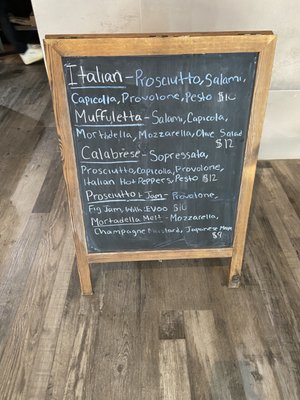 Italian - Prosciutto, Salami,
Capicolla, Provolone, Pesto $10
Muffuletta - Salami, Capicola,
Mortadella, Mozzarella, Olive Salad
$12
Calabrese - Sopressata,
Prosciutto, Capicolla, Provolone,
Italian Hot Peppers, Pesto $12
Prosciutto + Jam - Provolone,
Fig Jam, EVOO $10
Mortadella Melt - Mozzarella,
Champagne Mustard, Japanese Mayo
$9